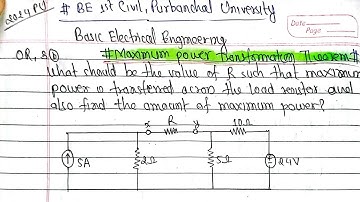 2024 PU
# BE 1st Civil, Purbanchal University
Date
Page
Basic Electrical Engineering
# Maximum power Transformation Theorem #
OR, 2 b
What should be the value of R such that maximum
power is transferred across the load resistor and
also find the amount of maximum power?
x R y 10Ω
5A 2Ω 5Ω 24V